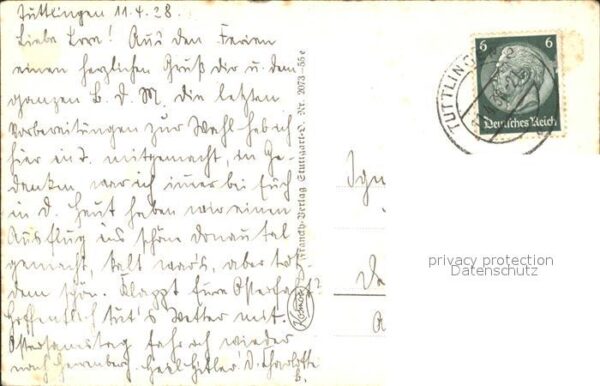 Tuttlingen 11.4.38.
Liebe Lore! Aus den Ferien
einen herzlichen Gruß dir u. dem
ganzen B. D. M. Die letzten
Vorbereitungen zur Wahl hab ich
hier in T. mitgemacht, in Ge-
danken war ich immer bei Euch
in D. Heut haben wir einen
Ausflug ins schöne Donautal
gemacht, kalt war's, aber trotz-
dem schön. Klappt Eure Osterfahrt?
Hoffentlich tut's Wetter mit.
Ostersamstag fahr ich wieder
nach Herrenberg. Heil Hitler! D. Charlotte
B.
Franckh-Verlag Stuttgart-O. Nr. 2073-55e
Kosmos
6 6
Deutsches Reich
TUTTLINGEN
privacy protection
Datenschutz